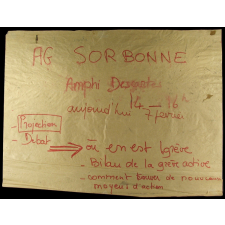 AG SORBONNE
Amphi Descartes
aujourd'hui 14 - 16h
7 février
- Projection
- Débat → où en est la grève
- Bilan de la grève active
- comment trouver de nouveaux
moyens d'action